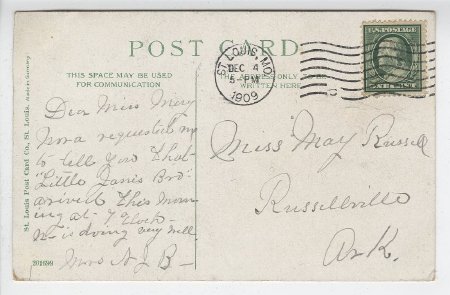 POST CARD
THIS SPACE MAY BE USED
FOR COMMUNICATION
THE ADDRESS ONLY TO BE
WRITTEN HERE
ST. LOUIS, MO.
DEC 4
5-PM
1909
U.S. POSTAGE
St. Louis Post Card Co., St. Louis. Made in Germany
Dear Miss May
Nora requested me
to tell you that
"Little Janis Bro"
arrived this morn
ing at 7 oclock
is doing very well.
Mrs A J B-
Miss May Russell
Russellville
Ark.
201699